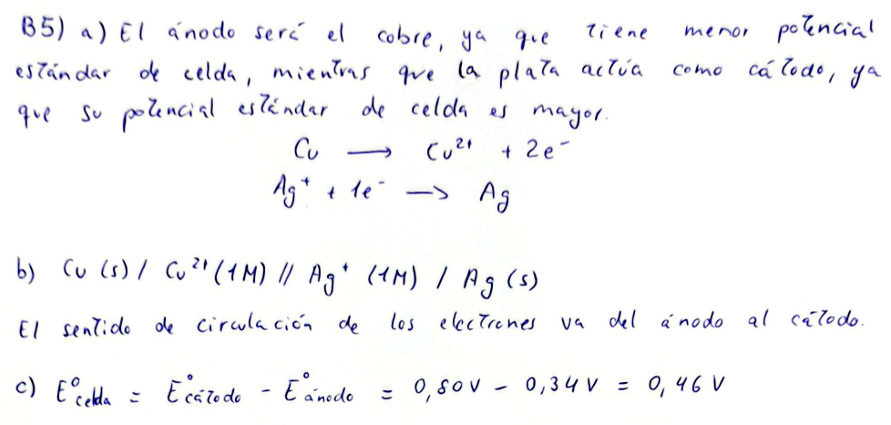 B5) a) El ánodo será el cobre, ya que tiene menor potencial
estándar de celda, mientras que la plata actúa como cátodo, ya
que su potencial estándar de celda es mayor.
Cu ⟶ Cu²⁺ + 2e⁻
Ag⁺ + 1e⁻ ⟶ Ag
b) Cu (s) / Cu²⁺ (1M) // Ag⁺ (1M) / Ag (s)
El sentido de circulación de los electrones va del ánodo al cátodo.
c) E°celda = E°cátodo - E°ánodo = 0,80V - 0,34V = 0,46 V